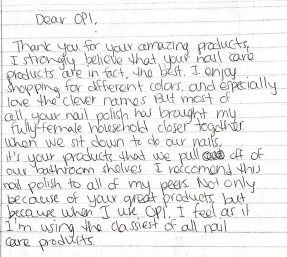 Dear OPI,
Thank you for your amazing products,
I strongly believe that your nail care
products are in fact, the best. I enjoy
shopping for different colors, and especially
love the clever names But most of
all, your nail polish has brought my
fully-female household closer together
when we sit down to do our nails,
it's your products that we pull off of
our bathroom shelves I reccomend this
nail polish to all of my peers. Not only
because of your great products, but
because when I use OPI, I feel as if
I'm using the classiest of all nail
care products.